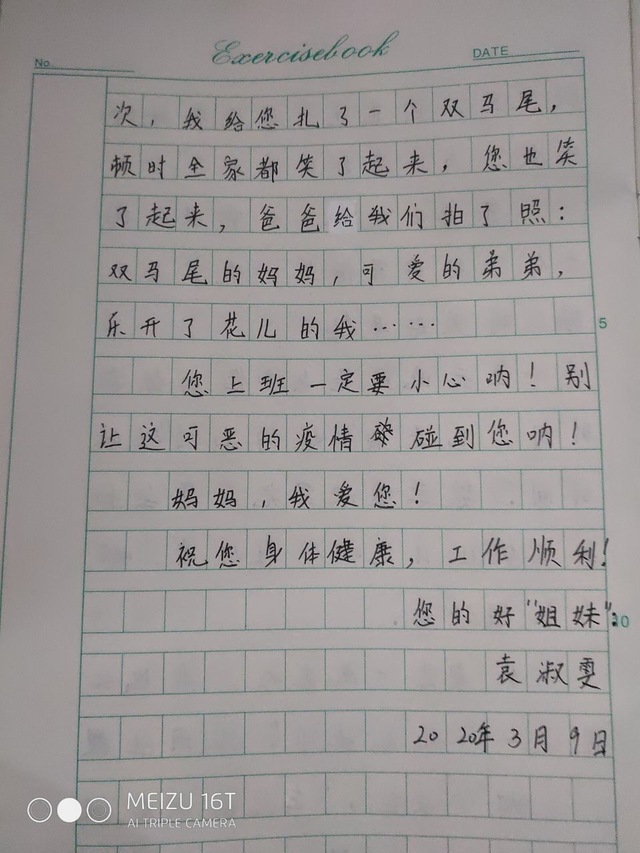 Exercisebook
No.
DATE
次，我给您扎了一个双马尾，
顿时全家都笑了起来，您也笑
了起来，爸爸给我们拍了照：
双马尾的妈妈，可爱的弟弟，
乐开了花儿的我……
5
您上班一定要小心呐！别
让这可恶的疫情碰到您呐！
妈妈，我爱您！
祝您身体健康，工作顺利！
您的好“姐妹”：
10
袁淑雯
2020年3月9日
MEIZU 16T
AI TRIPLE CAMERA